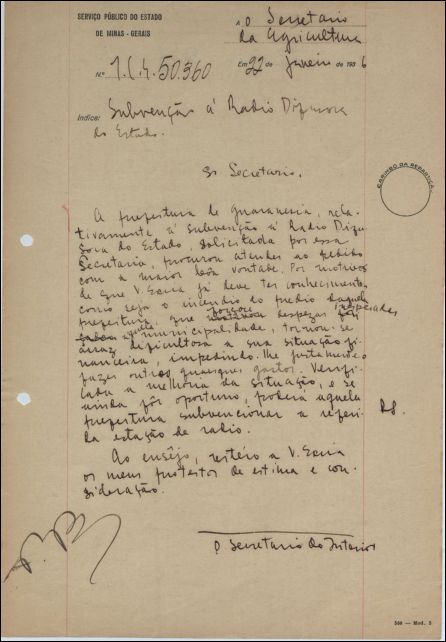 SERVIÇO PÚBLICO DO ESTADO
DE MINAS-GERAIS
A O Secretario
da Agricultura
Nº 1.(4.50.360
Em 22 de Janeiro de 1936
Indice: Subvenção á Radio Difusora
do Estado.
Sr. Secretario.
CARIMBO DA REPARTIÇÃO
A prefeitura de Guaranesia, rela-
tivamente á subvenção á Radio Difu-
sora do Estado, solicitada por essa
Secretaria, procurou atender ao pedido
com a maior bôa vontade. Por motivos
de que V. Excia já deve ter conhecimento,
como seja o incendio do predio daquela
prefeitura, que despezas inesperadas
aquela municipalidade, tornou-se
assaz dificultosa a sua situação fi-
nanceira, impedindo-lhe justamente
fazer outros quaesquer gastos. Verifi-
cada a melhoria da situação, e se
ainda fôr oportuno, poderá aquela
prefeitura subvencionar a referi-
da estação de radio.
Ao ensêjo, reitéro a V. Excia
os meus protestos de estima e con-
sideração.
O Secretario do Interior
560 — Mod. 5